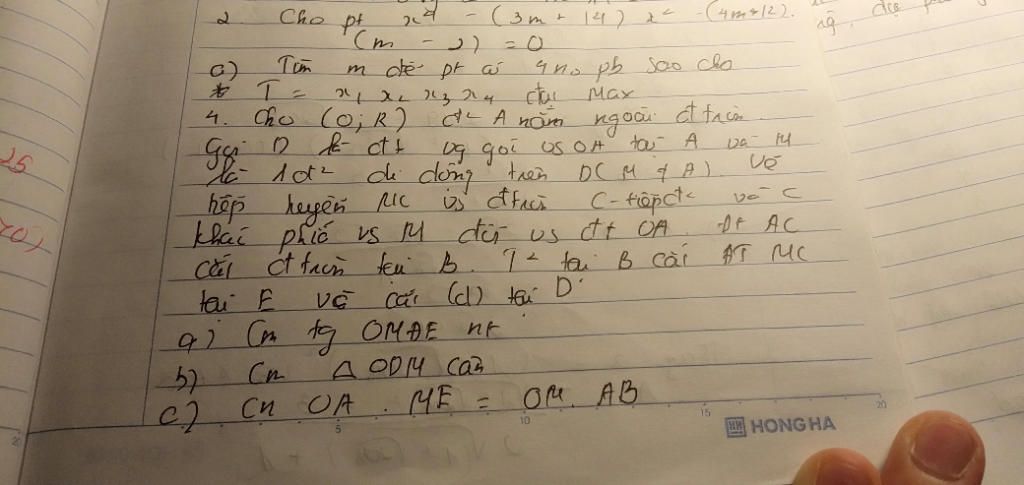 2. Cho pt x⁴ - (3m + 14) x² - (4m+12).
(m - 2) = 0
a) Tìm m để pt có 4 no pb sao cho
T = x₁ x₂ x₃ x₄ đạt Max
4. Cho (O; R) đ² A nằm ngoài đ tròn
Gọi D là đt vg góc vs OA tại A và M
là 1 đ² di động trên D (M ≠ A) Vẽ
tiếp tuyến MC vs đ tròn C-tiếp đ² và C
khác phía vs M đối vs đt OA. đt AC
cắt đ tròn tại B. T² tại B cắt MC
tại E và cắt (d) tại D.
a) Cm tg OMDE nt
b) Cm Δ ODM cân
c) Cm OA . ME = OM. AB
5 10 15 20
HONG HA